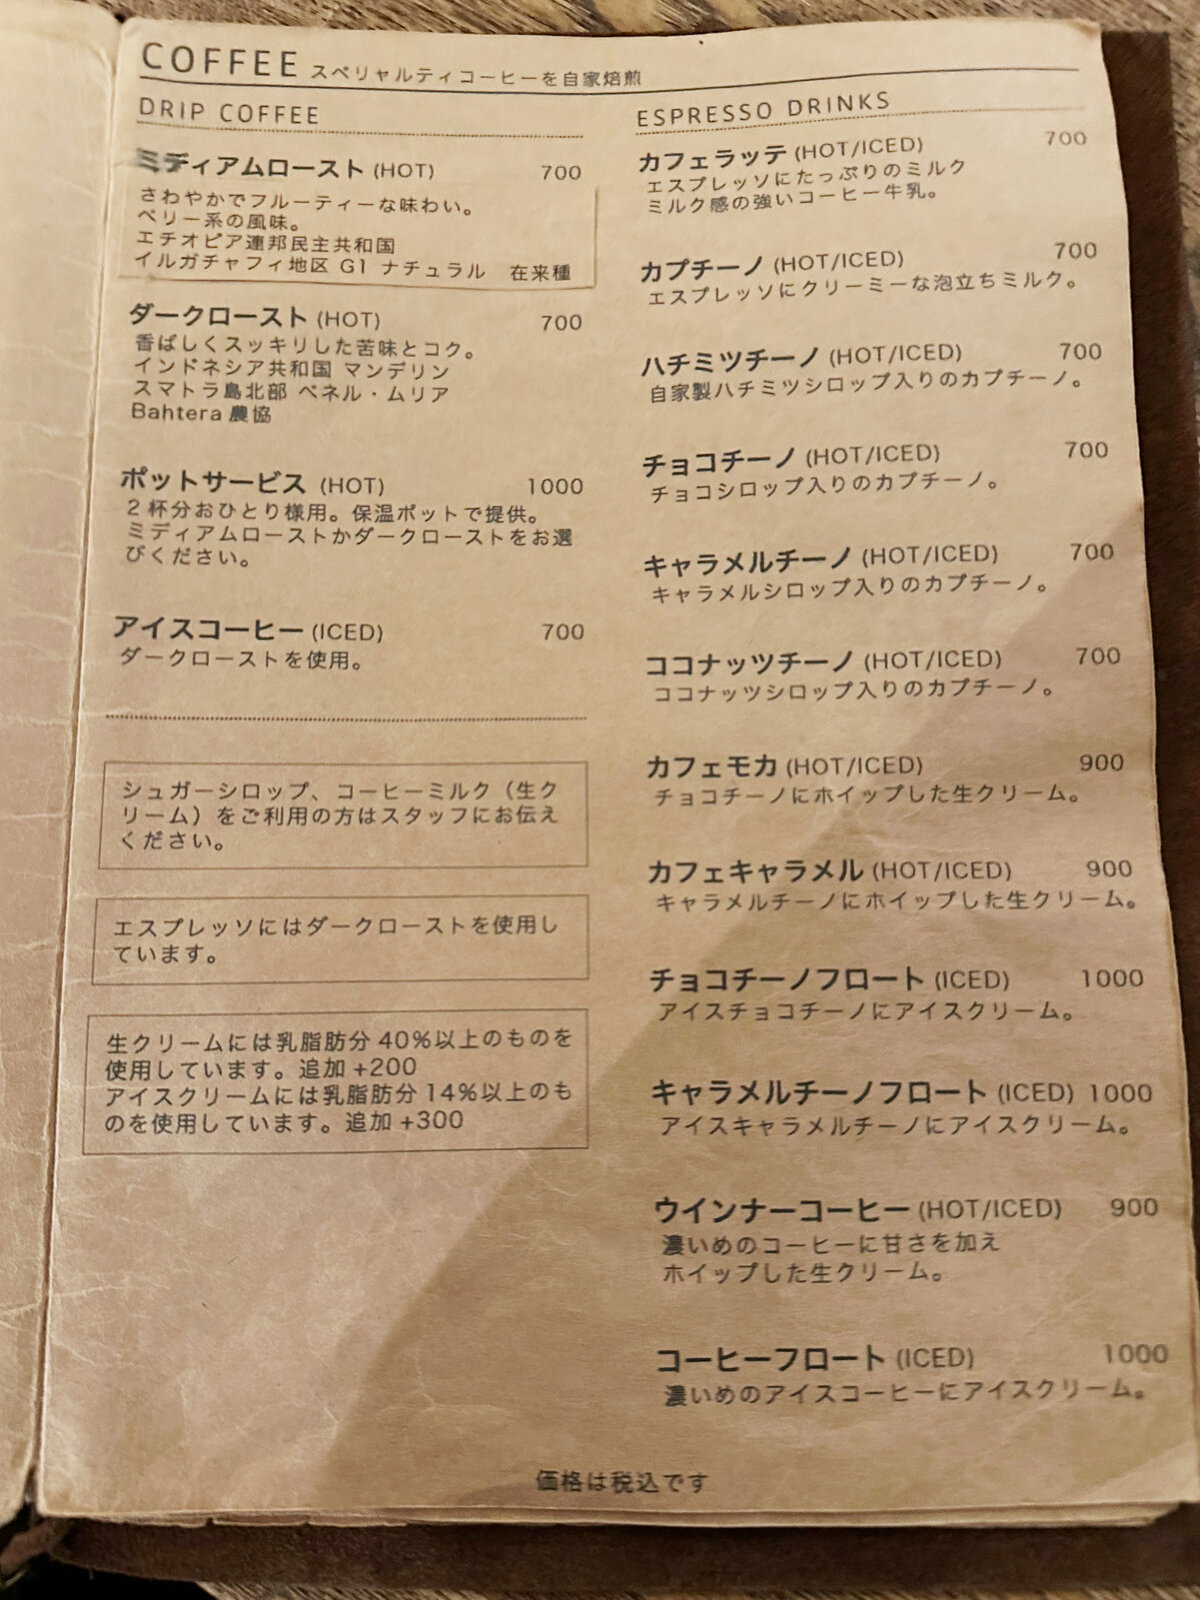 COFFEE スペシャルティコーヒーを自家焙煎
DRIP COFFEE
ミディアムロースト (HOT) 700
さわやかでフルーティーな味わい。
ベリー系の風味。
エチオピア連邦民主共和国
イルガチャフィ地区 G1 ナチュラル 在来種
ダークロースト (HOT) 700
香ばしくスッキリした苦味とコク。
インドネシア共和国 マンデリン
スマトラ島北部 ベネル・ムリア
Bahtera 農協
ポットサービス (HOT) 1000
2 杯分おひとり様用。保温ポットで提供。
ミディアムローストかダークローストをお選
びください。
アイスコーヒー (ICED) 700
ダークローストを使用。
シュガーシロップ、コーヒーミルク（生ク
リーム）をご利用の方はスタッフにお伝え
ください。
エスプレッソにはダークローストを使用し
ています。
生クリームには乳脂肪分 40%以上のものを
使用しています。追加 +200
アイスクリームには乳脂肪分 14%以上のも
のを使用しています。追加 +300
ESPRESSO DRINKS
カフェラッテ (HOT/ICED) 700
エスプレッソにたっぷりのミルク
ミルク感の強いコーヒー牛乳。
カプチーノ (HOT/ICED) 700
エスプレッソにクリーミーな泡立ちミルク。
ハチミツチーノ (HOT/ICED) 700
自家製ハチミツシロップ入りのカプチーノ。
チョコチーノ (HOT/ICED) 700
チョコシロップ入りのカプチーノ。
キャラメルチーノ (HOT/ICED) 700
キャラメルシロップ入りのカプチーノ。
ココナッツチーノ (HOT/ICED) 700
ココナッツシロップ入りのカプチーノ。
カフェモカ (HOT/ICED) 900
チョコチーノにホイップした生クリーム。
カフェキャラメル (HOT/ICED) 900
キャラメルチーノにホイップした生クリーム。
チョコチーノフロート (ICED) 1000
アイスチョコチーノにアイスクリーム。
キャラメルチーノフロート (ICED) 1000
アイスキャラメルチーノにアイスクリーム。
ウインナーコーヒー (HOT/ICED) 900
濃いめのコーヒーに甘さを加え
ホイップした生クリーム。
コーヒーフロート (ICED) 1000
濃いめのアイスコーヒーにアイスクリーム。
価格は税込です